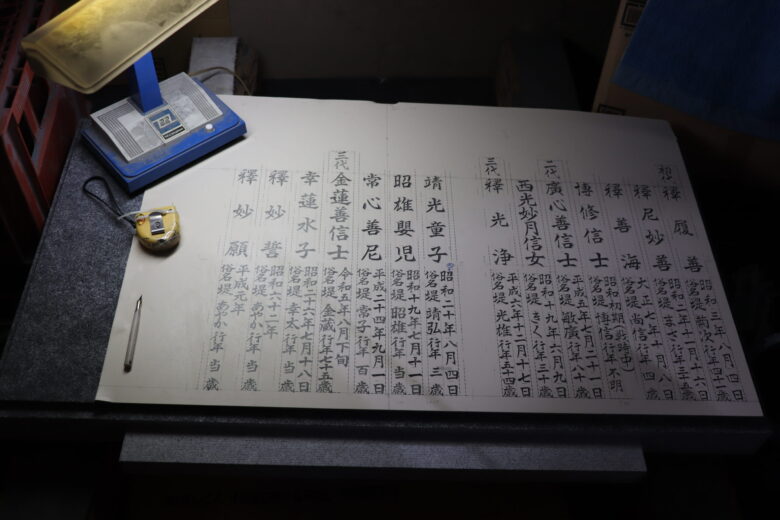 釋履善
昭和三年八月四日
俗名堤 菊次 行年四十二歳
釋尼妙善
昭和二年十一月十六日
俗名堤 行年三十五歳
釋善海
大正七年十月八日
俗名堤 尚信 行年四歳
博修信士
昭和初期(戦時中)
俗名堤 博信 行年不明
二代 廣心善信士
平成五年七月二十一日
俗名堤 敏廣 行年八十歳
西光妙月信女
昭和十九年六月九日
俗名堤 きく 行年三十歳
三代 釋光浄
平成六年十二月十七日
俗名堤 光雄 行年五十四歳
靖光童子
昭和二十年八月四日
俗名堤 靖弘 行年三歳
昭雄嬰児
昭和十九年七月十一日
俗名堤 昭雄 行年当歳
常心善尼
平成二十四年九月一日
俗名堤 常子 行年百歳
三代 金蓮善信士
令和五年八月下旬
俗名堤 金蔵 行年七十五歳
幸蓮水子
昭和二十六年七月十八日
俗名堤 幸太 行年当歳
釋妙誓
昭和六十二年
俗名堤 あやか 行年当歳
釋妙願
平成元年
俗名堤 あやか 行年当歳